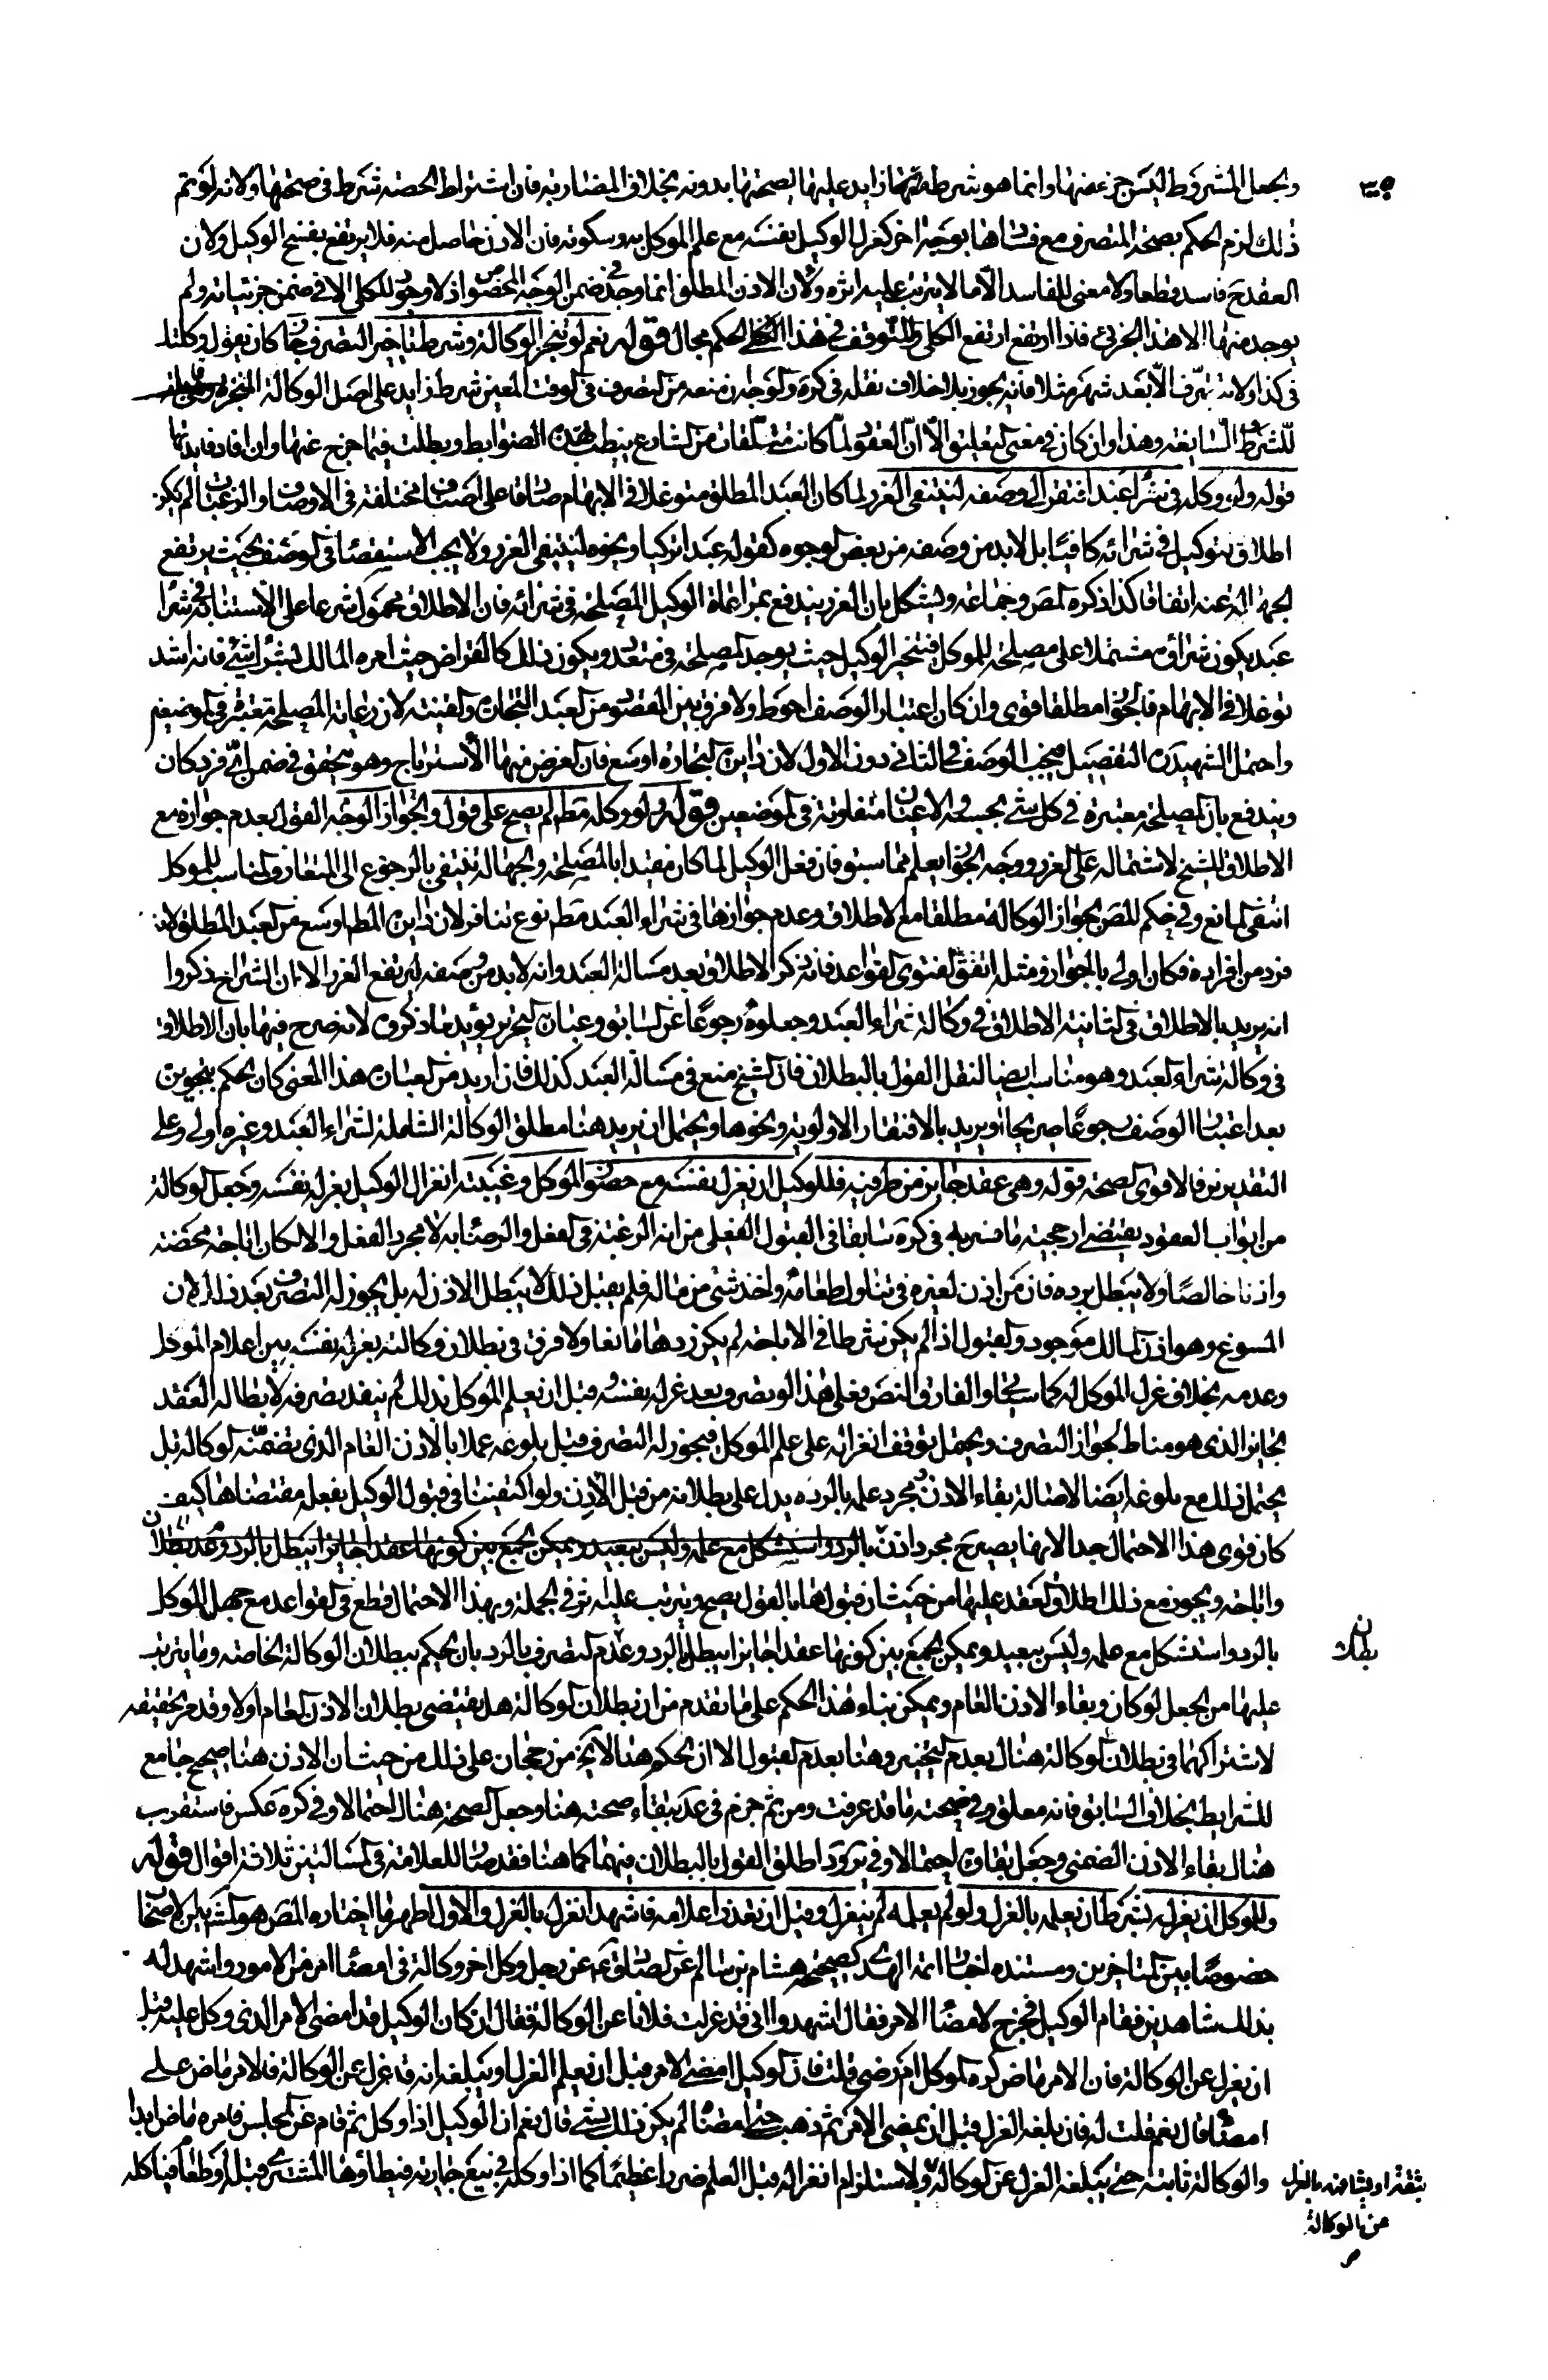 والجعل المشروط ليس جزء منها وانما هو شرط زايد عليها لصحتها بدونه بخلاف المضاربة فان اشتراط الحصة شرط في صحتها ولانه لو تم
ذلك لزم الحكم بصحة التصرف مع فسادها بوجه اخر كعزل الوكيل نفسه مع علم الموكل به وسكوته فان الاذن حاصل منه فلا يرتفع بفسخ الوكيل ولان
العقد ح فاسد قطعا ولا معنى للفاسد الا ما لا يترتب عليه اثره ولان الاذن المطلق انما وجد في ضمن الوجه المخصوص اذ لا وجود للكلي الا في ضمن جزئياته ولم
يوجد منها الا هذا الجزئي فاذا ارتفع ارتفع الكلي وللتوقف في هذا الحكم مجال قوله نعم لو نجز الوكالة وشرط تاخير التصرف جاز كان يقول وكلتك
في كذا ولا تتصرف الا بعد شهر مثلا فانه يجوز بلا خلاف نقله في كره ولو جازان منعه من التصرف في الوقت المعين شرط زايد على اصل الوكالة المنجزة
للشرط السايغة وهذا وان كان في معنى التعليق الا ان العقود لما كانت متلقات من الشارع نيطت بهذه الضوابط وبطلت فيما خرج عنها وان افاد فايدتها
قوله ولو وكله في شراء عبد افتقر الى وصفه لينتفي الغرر لما كان العبد المطلق متوغلا في الابهام صادقا على اصناف مختلفة في الاوصاف والرغبات لم يكن
اطلاق التوكيل في شرائه كافيا بل لا بد من وصفه من بعض الوجوه كقوله عبدا تركيا ونحوه لينتفي الغرر ولا يجب الاستقصاء في الوصف بحيث يرتفع
الجهالة عنه اتفاقا كذا ذكره المص وجماعة ويشكل بان الغرر يندفع بمراعاة الوكيل المصلحة في شرائه فان الاطلاق محمول شرعا على الاستنابة في شراء
عبد يكون شراؤه مشتملا على مصلحة للموكل فيتخير الوكيل حيث يوجد المصلحة في متعدد ويكون ذلك كالقراض حيث امره المالك بشراء شيء فانه اشد
توغلا في الابهام فالجواز مطلقا قوي وان كان اعتبار الوصف احوط ولا فرق بين المقصود من العبد التجارة والقنية لان رعاية المصلحة معتبرة في الموضعين
واحتمل الشهيد ره التفصيل فيجب الوصف في الثاني دون الاول لان دايرة التجارة اوسع فان الغرض منها الاسترباح وهو يتحقق في ضمن اي فرد كان
ويندفع بان المصلحة معتبرة في كل شيء بحسبه والاعيان متفاوتة في الموضعين قوله ولو وكله مطم لم يصح على قول والجواز الوجه القول بعدم جوازه مع
الاطلاق للشيخ لاشتماله على الغرر ووجه الجواز يعلم مما سبق فان فعل الوكيل لما كان مقيدا بالمصلحة والجهالة تنتفي بالرجوع الى المتعارف والمناسب للموكل
انتفى المانع وفي حكم المص بجواز الوكالة مطلقا مع الاطلاق وعدم جوازها في شراء العبد مطم نوع تنافر لان دايرة المطم اوسع من العبد المطلق لانه
فرد من افراده فكان اولى بالجواز ومثله اتفق لفتوى القواعد فانه ذكر الاطلاق بعد مسالة العبد وانه لا بد من وصفه ليرتفع الغرر الا ان الشراح ذكروا
انه يريد بالاطلاق في الثانية الاطلاق في وكالة شراء العبد وجعلوه رجوعا عن السابق وعبارة التحرير يؤيد ما ذكروه لانه صرح فيها بان الاطلاق
في وكالة شراء العبد وهو مناسب ايضا لنقل القول بالبطلان فان الشيخ منع في مسالة العبد كذلك فان اريد من العبارة هذا المعنى كان الحكم بتجويزه
بعد اعتبار الوصف رجوعا صريحا او يريد بالافتقار الاولوية ونحوها ويحتمل ان يريد هنا مطلق الوكالة الشاملة لشراء العبد وغيره اولى وعلى
التقديرين فالاقوى الصحة قوله وهي عقد جايز من طرفيه فللوكيل ان يعزل نفسه مع حضور الموكل وغيبته انعزال الوكيل بعزله نفسه وجعل الوكالة
من ابواب العقود يقتضي ارجحية ما فسر به في كره سابقا في القبول الفعلي من انه الرغبة في الفعل والرضا به لا مجرد الفعل والا لكان اباحة محضة
واذنا خالصا ولا يبطل برده فان من اذن لغيره في تناول طعامه واخذ شيء من ماله فلم يقبل ذلك لا يبطل الاذن له بل يجوز له التصرف بعد ذلك لان
المسوغ وهو اذن المالك موجود والقبول اذا لم يكن شرطا في الاباحة لم يكن ردها مانعا ولا فرق في بطلان وكالته بعزله نفسه بين اعلام الموكل
وعدمه بخلاف عزل الموكل له كما سياتي والفارق النص فعلى هذا لو تصرف بعد عزله نفسه قبل ان يعلم الموكل بذلك لم ينفذ تصرفه لابطاله العقد
الجايز الذي هو مناط لجواز التصرف ويحتمل توقف انعزاله على علم الموكل فيجوز له التصرف قبل بلوغه عملا بالاذن العام الذي تضمنته الوكالة بل
يحتمل ذلك مع بلوغه ايضا لاصالة بقاء الاذن ومجرد علمه بالرد لا يدل على بطلانه من قبل الاذن ولو اكتفينا في قبول الوكيل بفعله مقتضاها كيف
كان قوي هذا الاحتمال جدا لانها يصير ح مجرد اذن بالرد واستشكل مع علمه وليس ببعيد ويمكن الجمع بين كونها عقدا جايزا يبطل بالرد وعدم بطلان
واباحة ويجوز مع ذلك اطلاق العقد عليها من حيث ان قبولها بالقول يصح ويترتب عليه اثر في الجملة وبهذا الاحتمال قطع في القواعد مع جهل الموكل
بالرد واستشكل مع علمه وليس ببعيد ويمكن الجمع بين كونها عقدا جايزا يبطل بالرد وعدم بطلان التصرف بالرد بان يحكم ببطلان الوكالة الخاصة وما يترتب
عليها من الجعل لو كان وبقاء الاذن العام ويمكن بناء هذا الحكم على ما تقدم من ان بطلان الوكالة هل يقتضي بطلان الاذن العام او لا وقد مر تحقيقه
لاشتراكهما في بطلان الوكالة هناك بعدم التنجيز وهنا بعدم القبول الا ان الحكم هنا لا يخ من رجحان على ذلك من حيث ان الاذن هنا صحيح جامع
للشرايط بخلاف السابق فانه معلق وفي صحته ما قد عرفت ومن ثم جزم في عد ببقاء صحته هنا وجعل الصحة هناك احتمالا وفي كره عكس فاستقرب
هناك بقاء الاذن الضمني وجعل بقاؤه احتمالا وفي ير ود اطلق القول بالبطلان فيهما كما هنا فقد صار للعلامة في المسالتين ثلاثة اقوال قوله
وللموكل ان يعزله بشرط ان يعلمه بالعزل ولو لم يعلمه لم ينعزل وقيل ان تعذر اعلامه فاشهد انعزل بالعزل والاول اظهر ما اختاره المص هو المشهور بين الاصحاب
خصوصا بين المتاخرين ومستنده اخبار ائمة الهدى كصحيحة هشام بن سالم عن الصادق ع عن رجل وكل اخر وكالة في امضاء امر من الامور واشهد له
بذلك شاهدين فقام الوكيل فخرج لامضاء الامر فقال اشهدوا اني قد عزلت فلانا عن الوكالة فقال ان كان الوكيل قد امضى الامر الذي وكل عليه قبل
ان يعزل عن الوكالة فان الامر ماض كره الموكل ام رضي قلت فان الوكيل امضى الامر قبل ان يعلم العزل او يبلغه انه قد عزل عن الوكالة فالامر ماض على
امضاه قال نعم قلت له فان بلغه العزل قبل ان يمضي الامر ثم ذهب حتى امضاه لم يكن ذلك بشيء قال نعم ان الوكيل اذا وكل ثم قام عن المجلس فامره ماض ابدا
والوكالة ثابتة حتى يبلغه العزل عن الوكالة ولاستلزام انعزاله قبل العلم ضررا عظيما كما اذا وكله في بيع جارية فيطاؤها المشتري قبله او طعام فياكله
بطلان
بثقة او يشافهه بالعزل
عن الوكالة
ص